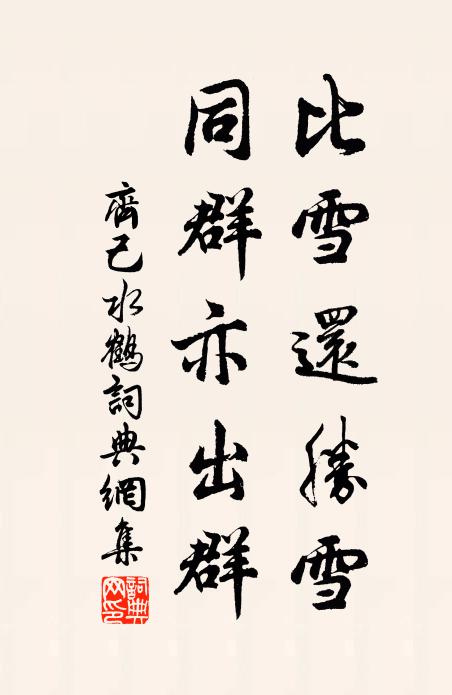 比雪還勝雪
同群亦出群
齊己水鶴詞典網集
詞典網印